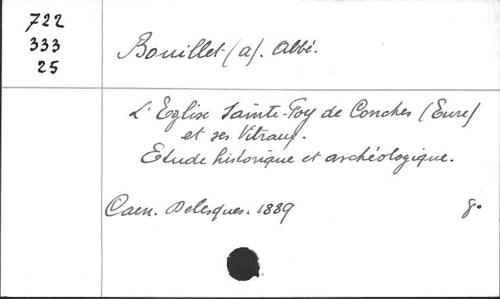 722
333
25
Bouillet (a). Abbé.
L'Eglise Sainte-Foy de Conches (Eure)
et ses Vitraux.
Etude historique et archéologique.
Caen. Delesques. 1889
8°